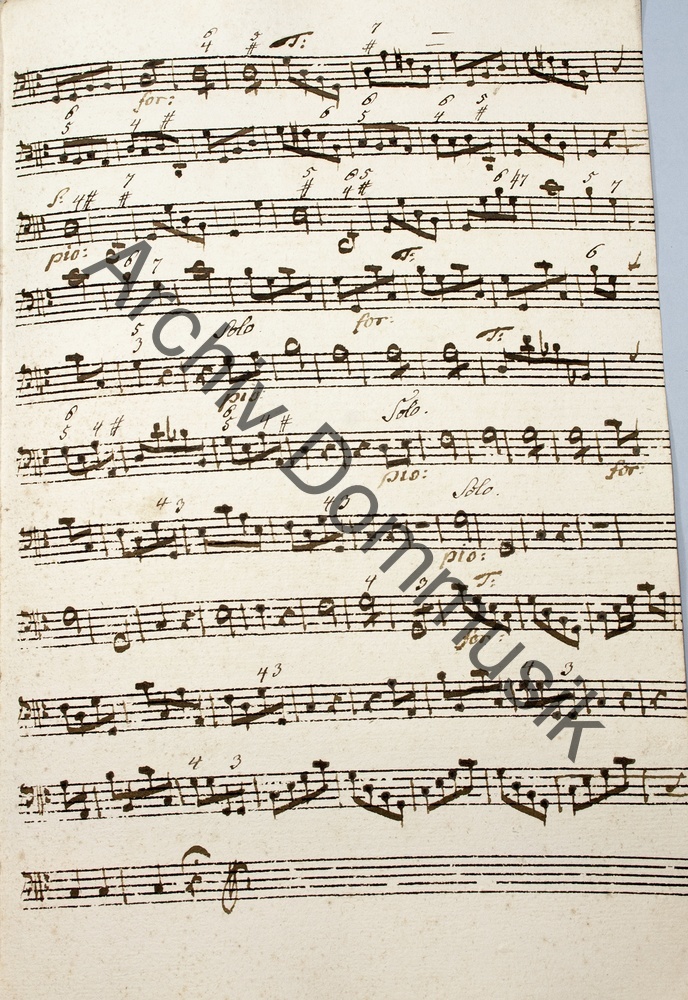 6 5 T: 7
4 # #
for:
6 6 6 6 5
5 4 # 5 4 #
S: 4 # 7 5 6 5 6 4 7 5 7
# # 4 #
pio:
6 7 T: 6
for:
5 Solo T:
3
pio:
6 6 Solo.
5 4 # 5 4 #
pio: for:
4 3 4 3 Solo.
pio:
4 3 T:
for:
4 3 4 3
4 3
Archiv Dommusik